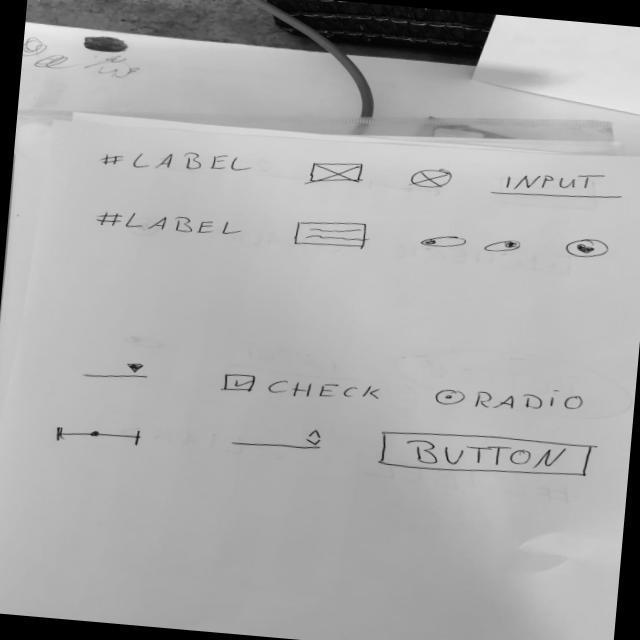 #LABEL INPUT
#LABEL
CHECK RADIO
BUTTON